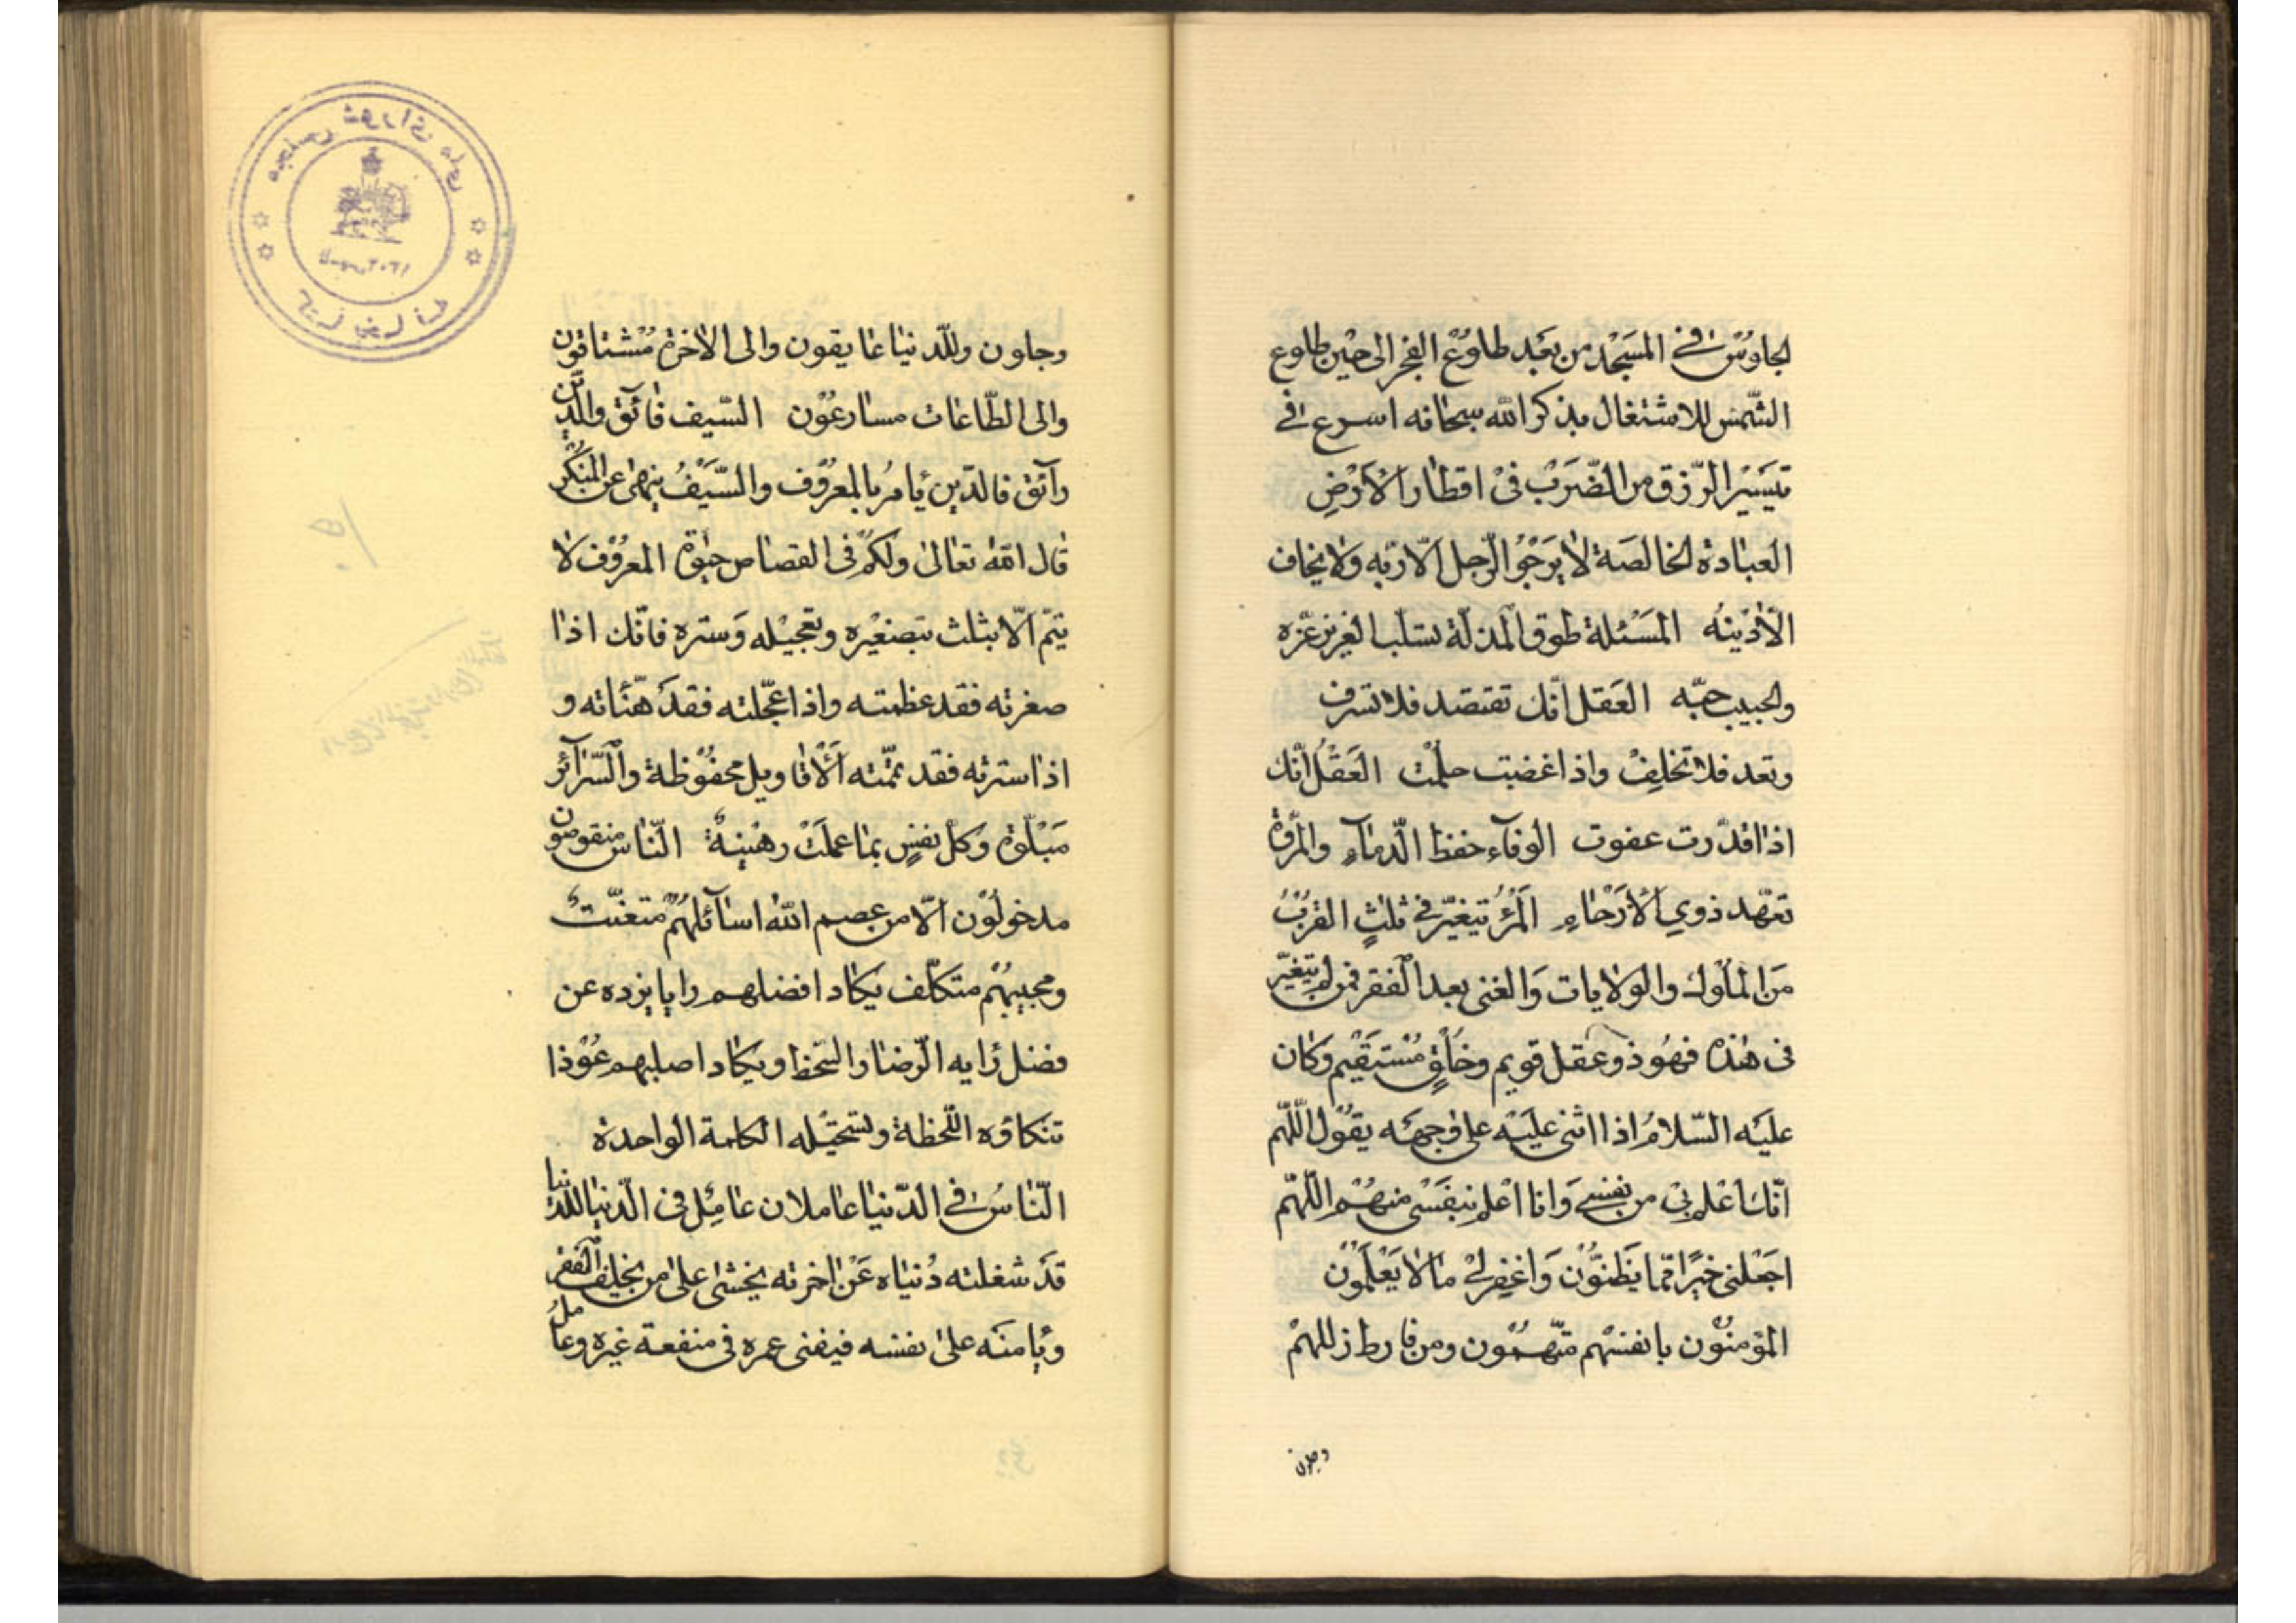 الجلوس في المسجد من بعد طلوع الفجر الى حين طلوع
الشمس للاشتغال بذكر الله سبحانه اسرع في
تيسير الرزق من الضرب في اقطار الارض
العبادة الخالصة لا يرجو الرجل الا ربه ولا يخاف
الا ذنبه المسئلة طوق المذلة تسلب العزيز عزه
والحبيب حبه العقل انك تقتصد فلا تسرف
وتعد فلا تخلف واذا غضبت حلمت العقل انك
اذا قدرت عفوت الوفاء حفظ الذماء والمروة
تعهد ذوي الارحاء المرء يتغير في ثلث القرب
من الملوك والولايات والغنى بعد الفقر فمن لم يتغير
في هذه فهو ذو عقل قويم وخلق مستقيم وكان
عليه السلام اذا اثنى عليه على وجهه يقول اللهم
انك اعلم بي من نفسي وانا اعلم بنفسي منهم اللهم
اجعلني خيرا مما يظنون واغفر لي ما لا يعلمون
المؤمنون بانفسهم متهمون ومن فارط زللهم
وجلون
وجلون وللدنيا عايقون والى الاخرة مشتاقون
والى الطاعات مسارعون السيف فاتق والدين
راتق فالدين يامر بالمعروف والسيف ينهى عن المنكر
قال الله تعالى ولكم في القصاص حيوة المعروف لا
يتم الا بثلث بتصغيره وتعجيله وستره فانك اذا
صغرته فقد عظمته واذا عجلته فقد هناته و
اذا سترته فقد تممته الاقاويل محفوظة والسرائر
مبلوة وكل نفس بما عملت رهينة الناس منقوصون
مدخولون الا من عصم الله سائلهم متعنت
ومجيبهم متكلف يكاد افضلهم رايا يرده عن
فضل رايه الرضا والسخط ويكاد اصلبهم عوذا
تنكاؤه اللحظة وتستحيله الكلمة الواحدة
الناس في الدنيا عاملان عامل في الدنيا للدنيا
قد شغلته دنياه عن اخرته يخشى على من يخلف الفقر
ويامنه على نفسه فيفنى عمره في منفعة غيره وعامل